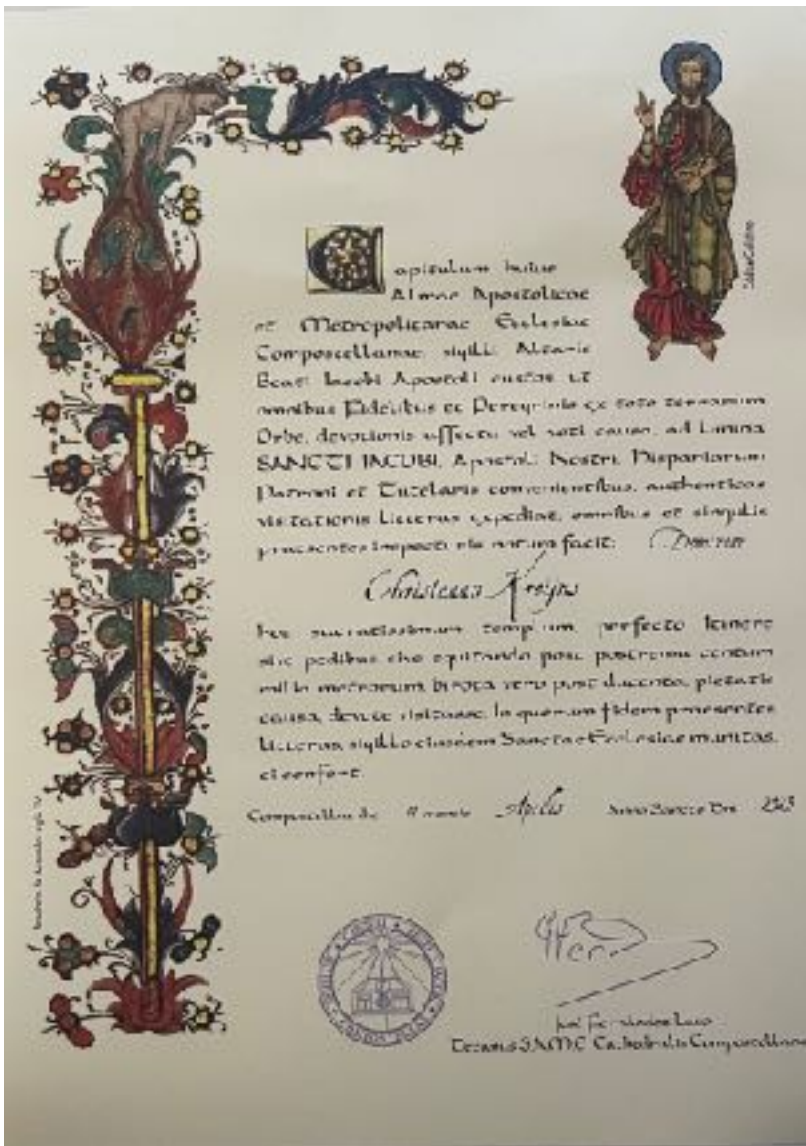 Capitulum huius
Almae Apostolicae
et Metropolitanae Ecclesiae
Compostellanae, sigilli Altaris
Beati Iacobi Apostoli custos, ut
omnibus Fidelibus et Peregrinis ex toto terrarum
Orbe, devotionis affectu vel voti causa, ad limina
SANCTI IACOBI, Apostoli Nostri, Hispaniarum
Patroni et Tutelaris convenientibus, authenticas
visitationis litteras expediat, omnibus et singulis
praesentes inspecturis notum facit:
hoc sacratissimum templum, perfecto Itinere
sive pedibus sive equitando post postrema centum
milia metrorum, birota vero post ducenta, pietatis
causa, devote visitasse. In quorum fidem praesentes
litteras, sigillo eiusdem Sanctae Ecclesiae munitas,
ei confert.
Compostellae die mense Aprilis Anno Dni 2023
Decanus S.A.M.E. Cathedralis Compostellanae
Codex Calixtino